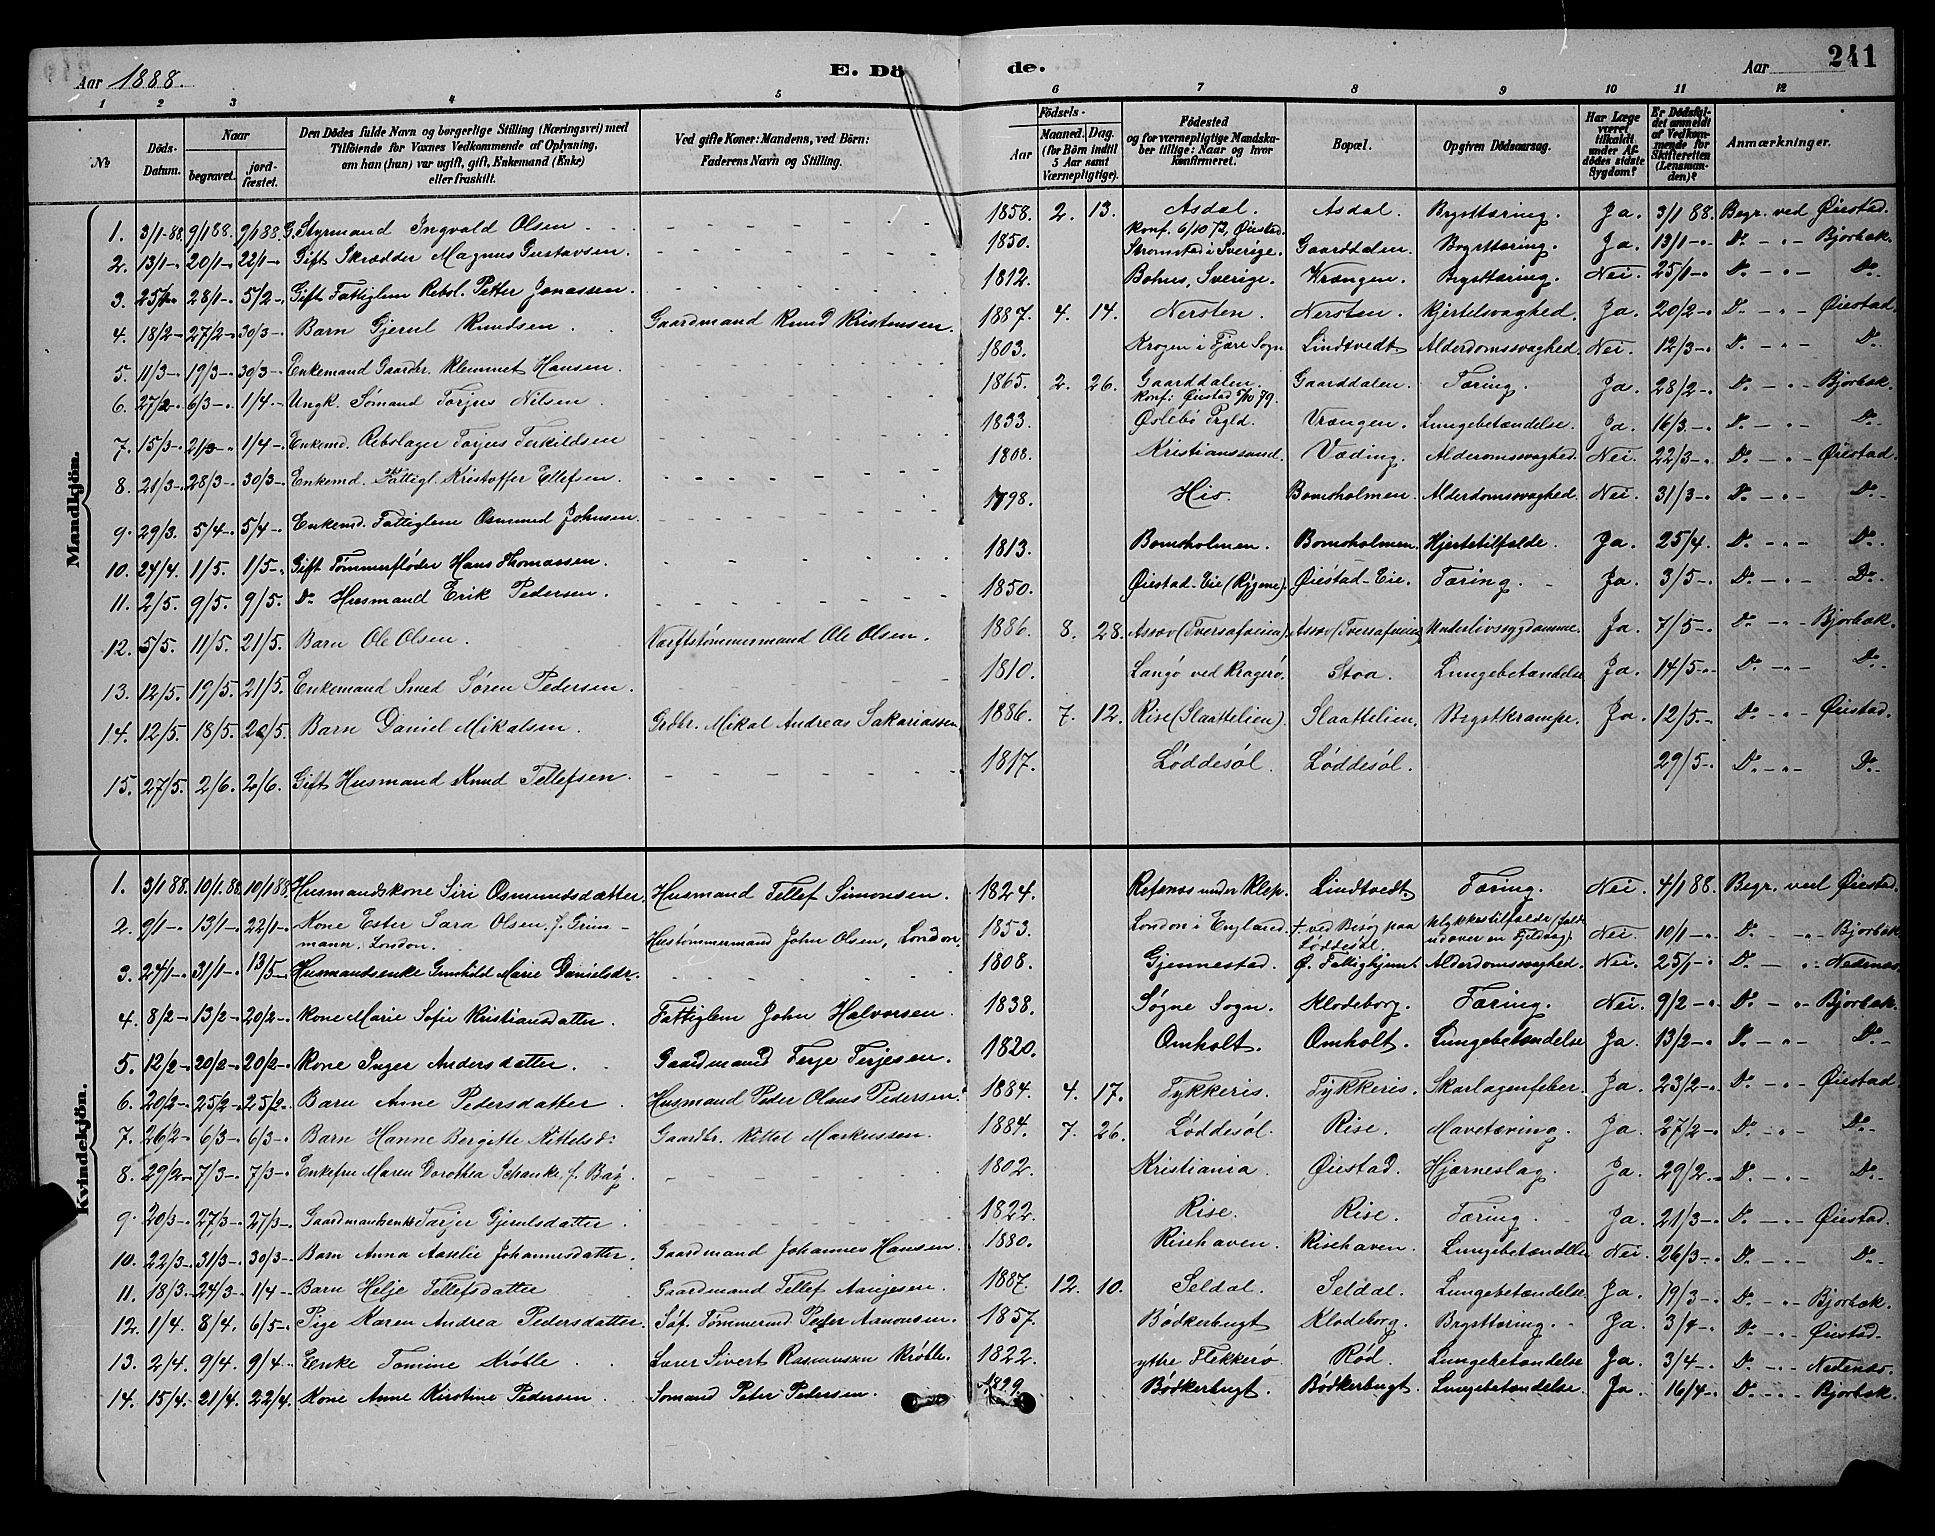 241
Aar 1888. E. Dö de. Aar
1 2 3 4 5 6 7 8 9 10 11 12
No Döds-Datum. Naar begravet. jordfæstet. Den Dödes fulde Navn og borgerlige Stilling (Næringsvei) med Tilföiende for Voxnes Vedkommende af Oplysning, om han (hun) var ugift, gift, Enkemand (Enke) eller fraskilt. Ved gifte Koner: Mandens, ved Börn: Faderens Navn og Stilling. Födsels- Aar Maaned. Dag. (for Börn indtil 5 Aar samt Værnepligtige). Födested og for værnepligtige Mandskaber tillige: Naar og hvor konfirmeret. Bopæl. Opgiven Dödsaarsag. Har Læge været tilkaldt under Afdödes sidste Sygdom? Er Dödsfaldet anmeldt af Vedkommende for Skifteretten (Lensmanden)? Anmærkninger.
Mandkjön.
1. 3/1-88. 9/1 88. 9/1 88. G. Styrmand Ingvald Olsen 1858. 2. 13. Asdal. Konf. 6/10 72, Øiestad. Asdal. Brysttæring. Ja. 3/1 88. Begr. ved Øiestad.
2. 13/1-. 20/1-. 22/1-. Gift Skrædder Magnus Gustavsen. 1850. Strømstad i Sverige. Gaarddalen. Brysttæring. Ja. 13/1-. Do - " - Bjorbæk.
3. 25/1-. 28/1-. 5/2-. Gift Fattiglem Rebsl. Petter Jonassen. 1812. Bohus, Sverige. Vrængen. Brysttæring. Nei. 25/1-. Do - " - Do
4. 18/2-. 27/2-. 30/3-. Barn Gjerul Knudsen. Gaardmand Knud Kristensen. 1887. 4. 14. Nersten. Nersten. Kjertelsvaghed. Ja. 20/2-. Do - " - Øiestad.
5. 11/3-. 19/3-. 30/3-. Enkemand Gaardbr. Klemmet Hansen. 1803. Krogen i Fjære Sogn Lindtvedt Alderdomssvaghed. Nei. 12/3-. Do - " - Do
6. 27/2-. 6/3-. 1/4-. Ungk. Sømand Torjus Nilsen. 1865. 2. 26. Gaarddalen. Konf: Øiestad 5/10 79. Gaarddalen. Tæring. Ja. 28/2-. Do - " - Bjorbæk.
7. 15/3-. 21/3-. 1/4-. Enkemd. Rebslager Torjus Terkildsen 1833. Øslebö Prgld. Vrængen. Lungebetændelse. Ja. 16/3-. Do - " - Do
8. 21/3-. 28/3-. 30/3-. Enkemd. Fattigl. Kristoffer Ellefsen. 1808. Kristianssund. Væding. Alderomssvaghed. Nei. 22/3-. Do - " - Øiestad.
9. 29/3. 5/4-. 5/4-. Enkemd. Fattiglem Osmund Johnsen. 1798. His. Bomsholmen. Alderdomssvaghed. Nei. 31/3-. Do - " - Do
10. 24/4. 1/5. 1/5-. Gift Tømmerfløder Hans Thomassen. 1813. Bomsholmen. Bomsholmen. Hjertetilfælde. Ja. 25/4. Do - " - Do
11. 2/5. 9/5. 9/5. Do Husmand Erik Pedersen. 1850. Øiestad-Eie (Rygene). Øiestad-Eie. Tæring. Ja. 3/5-. Do - " - Do
12. 5/5. 11/5. 21/5. Barn Ole Olsen. Værftstømmermand Ole Olsen. 1886. 8. 28. Underlivssygdomme. Ja. 7/5-. Do - " - Bjorbæk.
13. 12/5. 19/5. 21/5. Enkemand Smed Søren Pedersen. 1810. Langø ved Kragerø. Stoa. Lungebetændelse Ja. 14/5-. Do - " - Do
14. 12/5. 18/5. 20/5. Barn Daniel Mikalsen. Grdbr. Mikal Andreas Sakariassen 1886. 7. 12. Rise (Slaattelien). Slaattelien. Brystkrampe. Ja. 12/5-. Do - " - Øiestad.
15. 27/5. 2/6. 2/6. Gift Husmand Knud Tellefsen. 1817. Løddesøl. Løddesøl. 29/5-. Do - " - Do
Kvindekjön.
1. 3/1 88. 10/1 88. 10/1 88. Husmandskone Siri Osmundsdatter. Husmand Tellef Simonsen. 1824. Refsnæs under Klep. Lindtvedt. Tæring. Nei. 4/1 88. Begr. ved Øiestad.
2. 9/1-. 13/1-. 22/1-. Kone Ester Sara Olsen, f. Grimmann. London. Hustømmermand John Olsen, London. 1853. London i England. † ved Besøg paa Løddesøl. Ulykkestilfælde (faldt udover en Fjeldvæg). Nei. 10/1-. Do - " Bjorbæk.
3. 24/1-. 31/1-. 13/5-. Husmandsenke Gunhild Marie Danielsdr. 1808. Gjennestad. Ø. Fattighjem. Alderdomssvaghed. Nei. 25/1-. Do - " Nedenæs.
4. 8/2-. 13/2-. 20/2-. Kone Marie Sofie Kristiansdatter. Fattiglem John Halvorsen. 1838. Søgne Sogn. Klodeborg. Tæring. Nei. 9/2-. Do - " Bjorbæk.
5. 12/2-. 20/2-. 20/2-. Kone Inger Andersdatter. Gaardmand Terje Terjesen. 1820. Omholt. Omholt. Lungebetændelse Ja. 13/2-. Do - " Do
6. 20/2-. 25/2-. 25/2-. Barn Anne Pedersdatter. Husmand Peder Olaus Pedersen. 1884. 4. 17. Tykkeris. Tykkeris. Skarlagenfeber. Ja. 23/2-. Do - " Øiestad.
7. 26/2-. 6/3-. 6/3-. Barn Hanne Bergitte Kittelsd: Gaardbr. Kittel Markussen. 1884. 7. 26. Løddesøl. Rise. Mavetæring. Ja. 27/2-. Do - " Do
8. 29/2-. 7/3-. 7/3-. Enkefru Maren Dorothea Schanke f. Bay. 1802. Kristiania. Øiestad. Hjerneslag. Ja. 29/2-. Do - " Do
9. 20/3-. 27/3-. 27/3-. Gaardmandsenke Torjer Gjerulsdatter. 1822. Rise. Rise. Tæring. Ja. 21/3-. Do - " Øiestad.
10. 22/3-. 31/3-. 30/3-. Barn Anna Aaselie Johannesdatter. Gaardmand Johannes Hansen. 1880. Risehaven. Risehaven. Lungebetændelse Nei. 26/3-. Do - " Do
11. 18/3. 24/3-. 1/4-. Barn Helje Tellefsdatter Gaardmand Tellef Aanjesen. 1887. 12. 10. Seldal. Seldal. Lungebetændelse. Ja. 19/3-. Do - " Bjorbæk.
12. 1/4. 8/4. 6/5-. Pige Karen Andrea Pedersdatter. Søf. Tømmermd Peder Aanonsen. 1857. Bødkerbugt Klodeborg. Brysttæring. Ja. 3/4-. Do - " Øiestad.
13. 2/4. 9/4. 9/4. Enke Tomine Krøble. Lærer Sivert Rasmussen Krøble. 1822. ytre Flekkerø. Rød. Lungebetændelse. Ja. 3/4-. Do - " Nedenæs.
14. 15/4. 21/4. 22/4. Kone Anne Kirstine Pedersen. Sømand Peter Pedersen. 1829. Bødkerbugt. Bødkerbugt. Lungebetændelse. Ja. 16/4-. Do - " Bjorbæk.